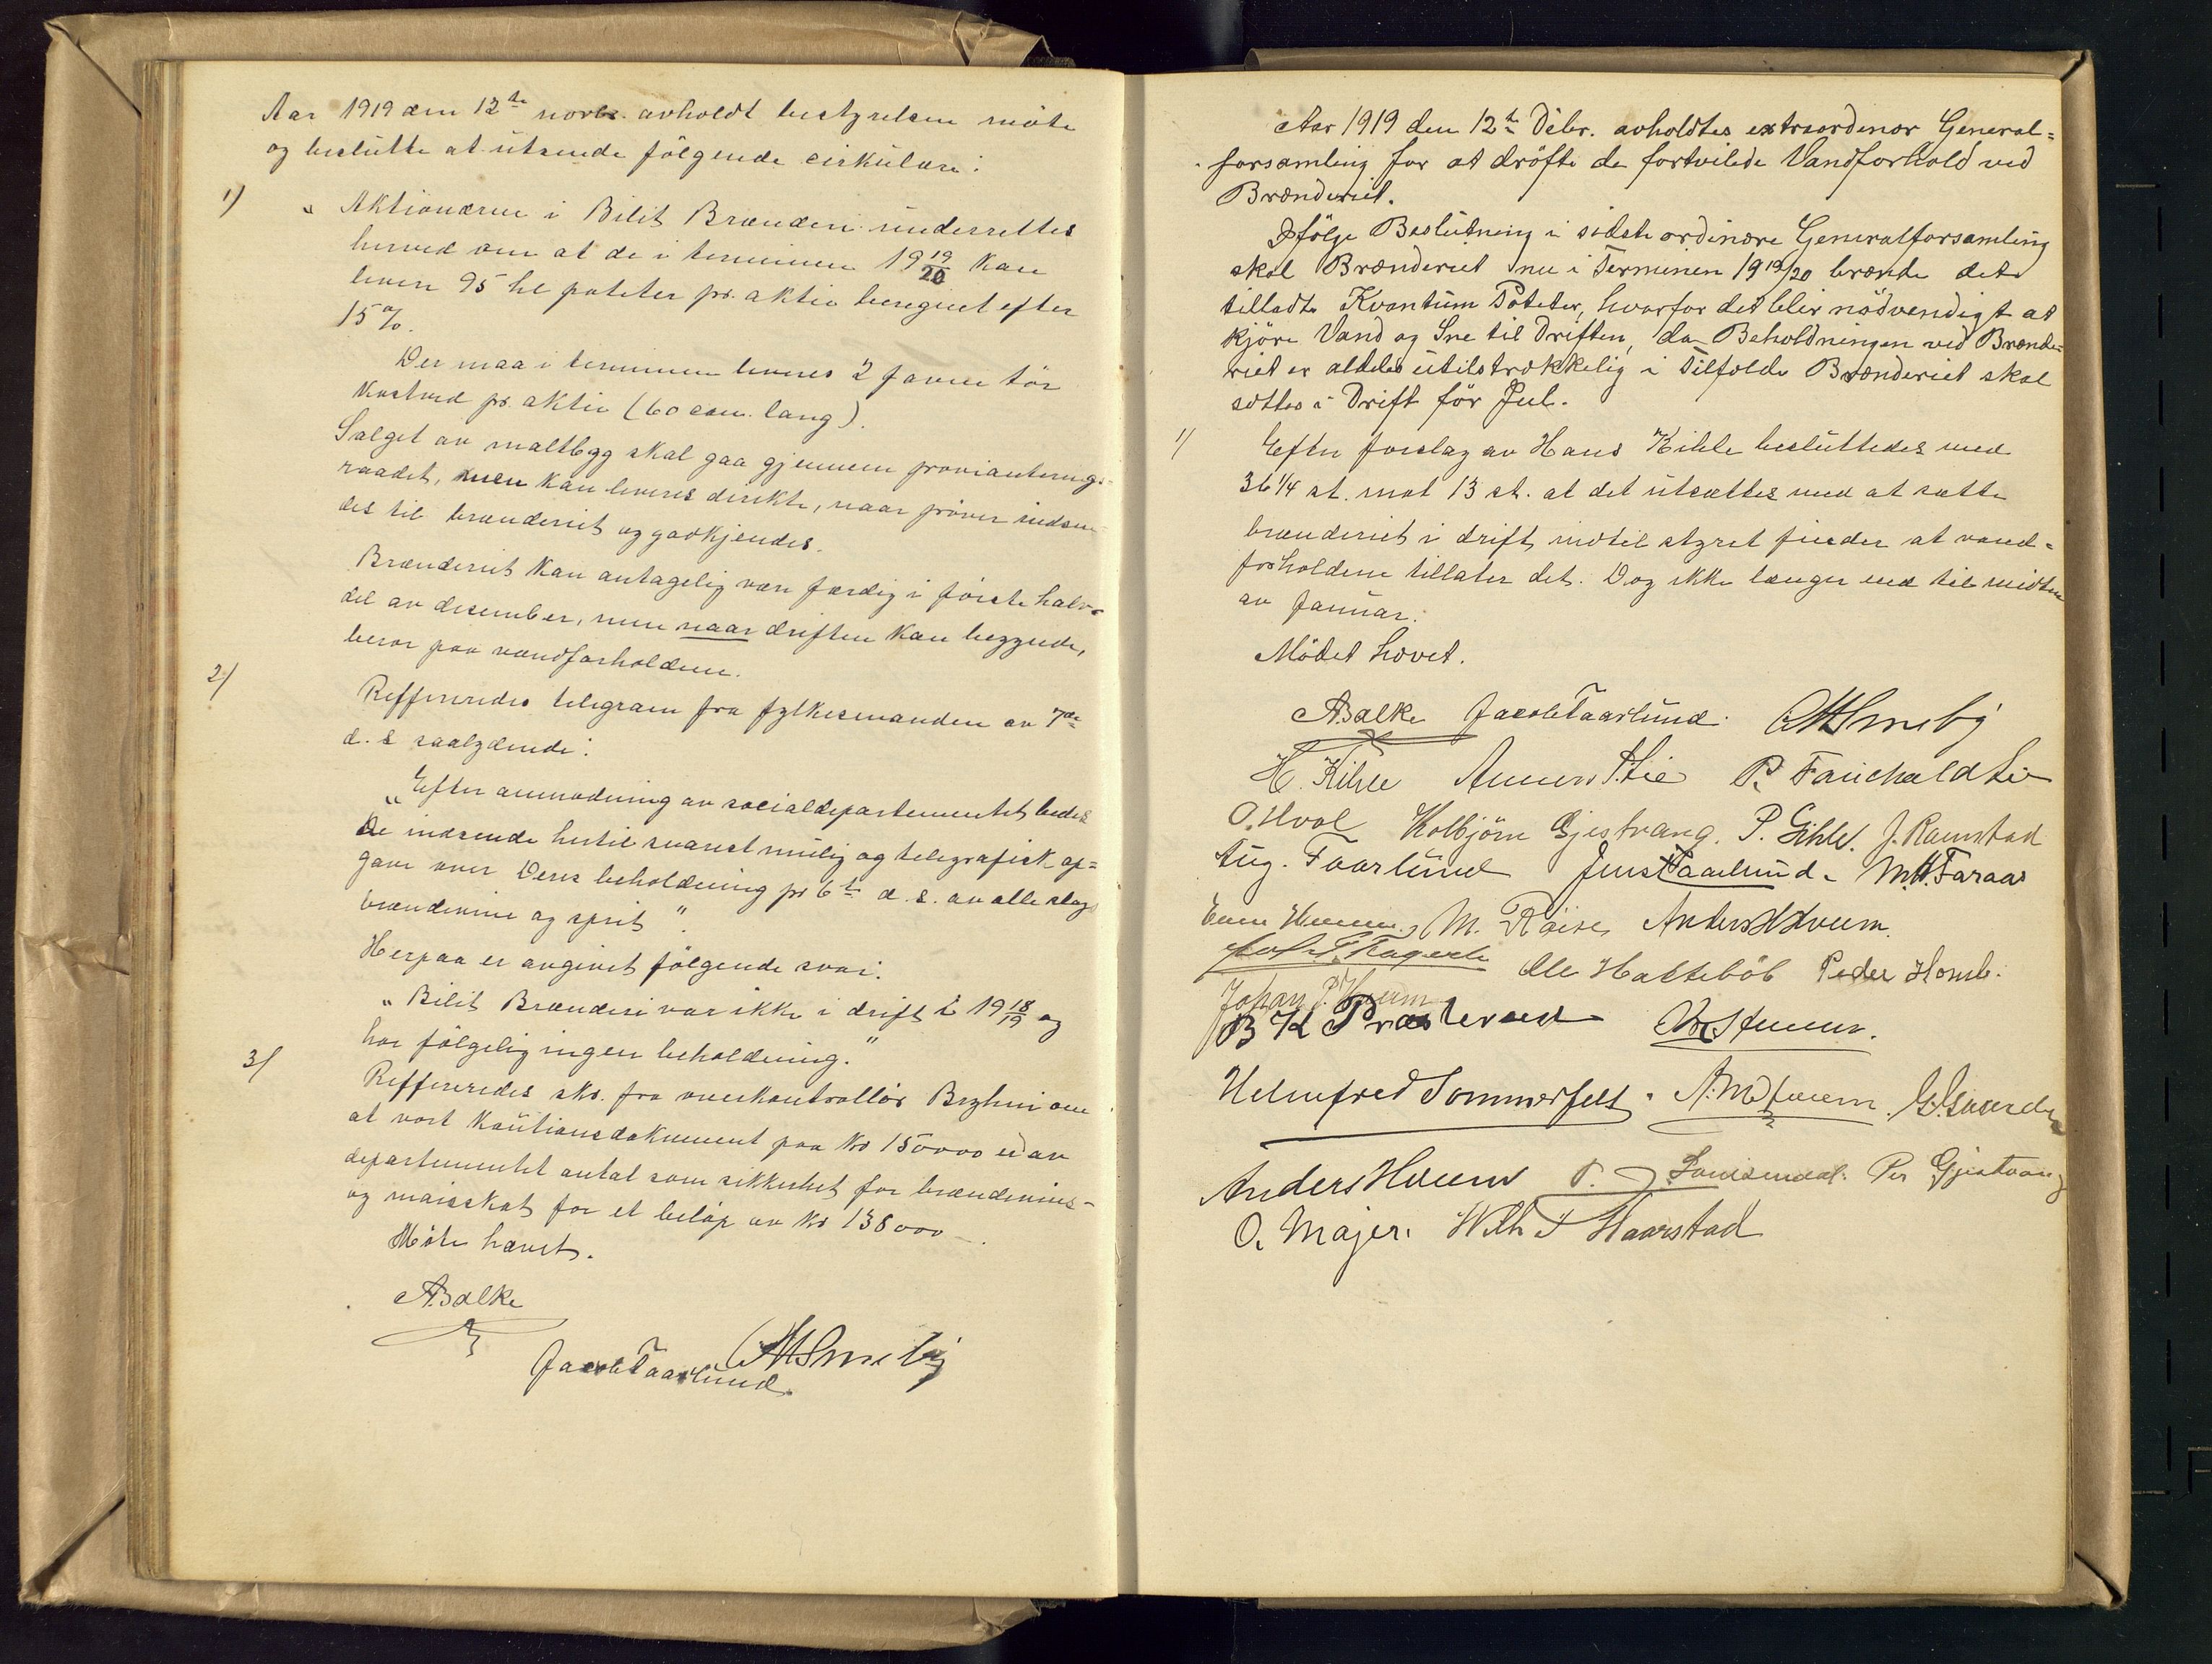 Aar 1919 den 12te novbr. avholdt bestyrelsen möte
og beslutte at utsende følgende cirkulære:
1) „Aktionærene i Bilit Brænderi underrettes
herved om at de i terminen 19 19/20 kan
levere 95 hl poteter pr. aktie beregnet efter
15%.
Der maa i terminen leveres 2 favne tör
kastved pr. aktie (60 cm. lang).
Salget av maltbygg skal gaa gjennem provianterings-
raadet, men kan leveres direkte, naar pröver indsen-
des til brænderiet og godkjendes.
Brænderiet kan antagelig være færdig i förste halv-
del av desember, men naar driften kan begynde,
beror paa vandforholdene.
2) Reffereredes telegram fra fylkesmanden av 7de
d. s saalydende:
„Efter anmodning av socialdepartementet bedes
De indsende hertil snarest mulig og telegrafisk op-
gave over Deres beholdning pr 6te d. s. av alle slags
brændevine og sprit“.
Herpaa er avgivet fölgende svar:
„Bilit Brænderi var ikke i drift i 19 18/19 og
har fölgelig ingen beholdning.“
3) Reffereredes skr. fra overkontrollör Bryhni om
at vort kautionsdokument paa kr 150000 er av
departementet antat som sikkerhet for brændevins-
og maisskat for et belöp av kr 138000 -.
Möte hævet.
A Balke
Jacob Taarlund AHSmeby
Aar 1919 den 12te Debr. avholdtes extraordinær General=
forsamling for at dröfte de fortvilede Vandforhold ved
Brænderiet.
Ifölge Beslutning i sidste ordinære Generalforsamling
skal Brænderiet nu i Terminen 1919/20 brænde det
tilladte Kvantum Poteter, hvorfor det blir nödvendigt at
kjöre Vand og Sne til Driften, da Beholdningen ved Brænde-
riet er aldeles utilstrækkelig i Tilfælde Brænderiet skal
sættes i Drift för Jul.
1) Efter forslag av Hans Kihle besluttedes med
36 1/4 st. mot 13 st. at det utsættes med at sætte
brænderiet i drift indtil styret finder at vand-
forholdene tillater det. Dog ikke længer end til midten
av Januar.
Mödet hævet.
A Balke Jacob Taarlund. AHSmeby
H. Kihle P. Fauchald
O. Hval Kolbjörn Gjestvang. P. Gihle. J. Ramstad
Aug. Faarlund Jens Taarlund. M.H. Faraas
M. Röise, Anders Hveem.
Ole Hatlebök Peder Homb.
Johan P. Hveem
B K Præsterud
Helmfred Sommerfelt.
Anders Hveem P. Per Gjestvang
O. Majer. Wilh Haarstad